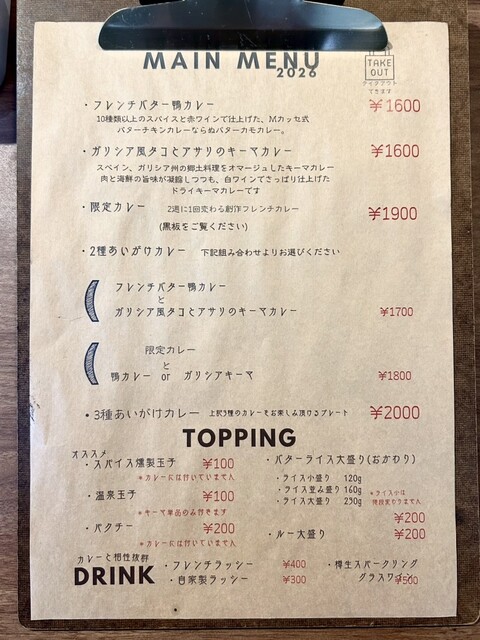 MAIN MENU
2026
TAKE OUT
テイクアウト
できます
・フレンチバター鴨カレー ¥1600
10種類以上のスパイスと赤ワインで仕上げた、Mカッセ式
バターチキンカレーならぬバターカモカレー。
・ガリシア風タコとアサリのキーマカレー ¥1600
スペイン、ガリシア州の郷土料理をオマージュしたキーマカレー
肉と海鮮の旨味が凝縮しつつも、白ワインでさっぱり仕上げた
ドライキーマカレーです
・限定カレー 2週に1回変わる創作フレンチカレー ¥1900
(黒板をご覧ください)
・2種あいがけカレー 下記組み合わせよりお選びください
フレンチバター鴨カレー
と
ガリシア風タコとアサリのキーマカレー ¥1700
限定カレー
と
鴨カレー or ガリシアキーマ ¥1800
・3種あいがけカレー 上記3種のカレーをお楽しみ頂けるプレート ¥2000
TOPPING
オススメ
・スパイス燻製玉子 ¥100
＊カレーには付いていません
・温泉玉子 ¥100
＊キーマ単品のみ付きます
・パクチー ¥200
＊カレーには付いていません
・バターライス大盛り(おかわり)
・ライス小盛り 120g
・ライス並み盛り 160g
・ライス大盛り 230g
＊ライス小は
値段変わりません
¥200
・ルー大盛り ¥200
カレーと相性抜群
DRINK
・フレンチラッシー ¥400
・自家製ラッシー ¥300
・樽生スパークリング
グラスワイン ¥500